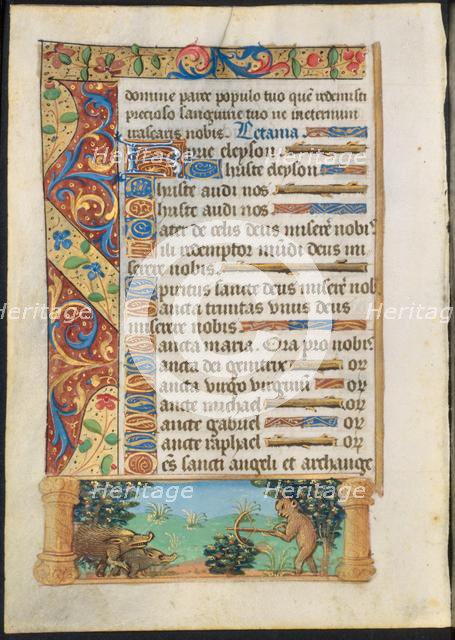 domine parce populo tuo quē redemisti
precioso sanguine tuo ne ineternum
irascaris nobis. Letania
Kyrie eleyson
Christe eleyson
Christe audi nos
Christe audi nos
Pater de celis deus miserē nobis
Fili redemptor mūdi deus mi
serere nobis
Spiritus sancte deus miserē nob
Sancta trinitas vnus deus
miserere nobis
Sancta maria. Ora pro nobis
Sancta dei genitrix or
Sancta virgo virginū or
Sancte michael or
Sancte gabriel or
Sancte raphael or
Oēs sancti angeli et archange
Heritage
Heritage
Heritage
Heritage
Heritage
Heritage
Heritage
Heritage